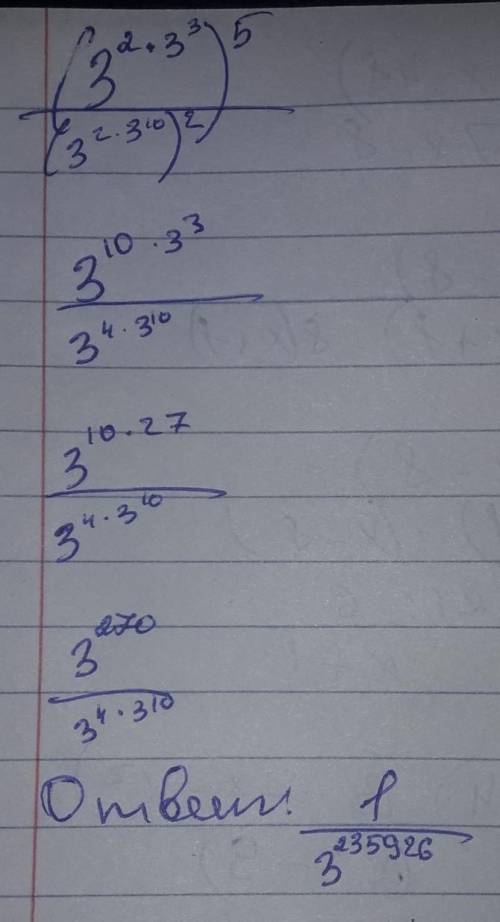 (3^{2·3^3})^5
(3^{2·3^{10}})^2
3^{10·3^3}
3^{4·3^{10}}
3^{10·27}
3^{4·3^{10}}
3^{270}
3^{4·3^{10}}
Ответ: 1
3^{235926}